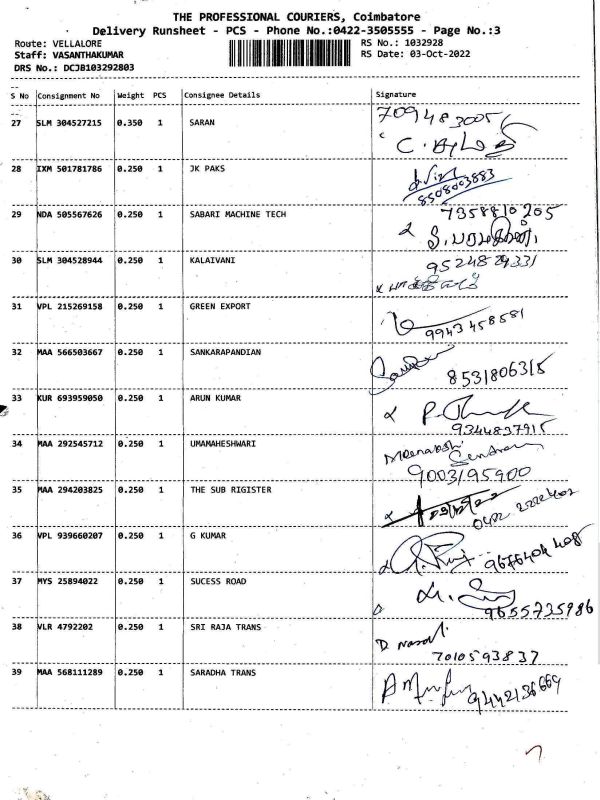 THE PROFESSIONAL COURIERS, Coimbatore
Delivery Runsheet - PCS - Phone No.:0422-3505555 - Page No.:3
Route: VELLALORE RS No.: 1032928
Staff: VASANTHAKUMAR RS Date: 03-Oct-2022
DRS No.: DCJB103292803
S No Consignment No Weight PCS Consignee Details Signature
27 SLM 304527215 0.350 1 SARAN 7094830051
28 IXM 501781786 0.250 1 JK PAKS
8508003883
29 NDA 505567626 0.250 1 SABARI MACHINE TECH 7358810205
30 SLM 304528944 0.250 1 KALAIVANI 9524829331
31 VPL 215269158 0.250 1 GREEN EXPORT
9943458581
32 MAA 566503667 0.250 1 SANKARAPANDIAN
8531806315
33 KUR 693959050 0.250 1 ARUN KUMAR
9344837915
34 MAA 292545712 0.250 1 UMAMAHESHWARI Meenakshi
9003195900
35 MAA 294203825 0.250 1 THE SUB RIGISTER
36 VPL 939660207 0.250 1 G KUMAR
37 MYS 25894022 0.250 1 SUCESS ROAD
9655735986
38 VLR 4792202 0.250 1 SRI RAJA TRANS
7010593837
39 MAA 568111289 0.250 1 SARADHA TRANS
9442136669